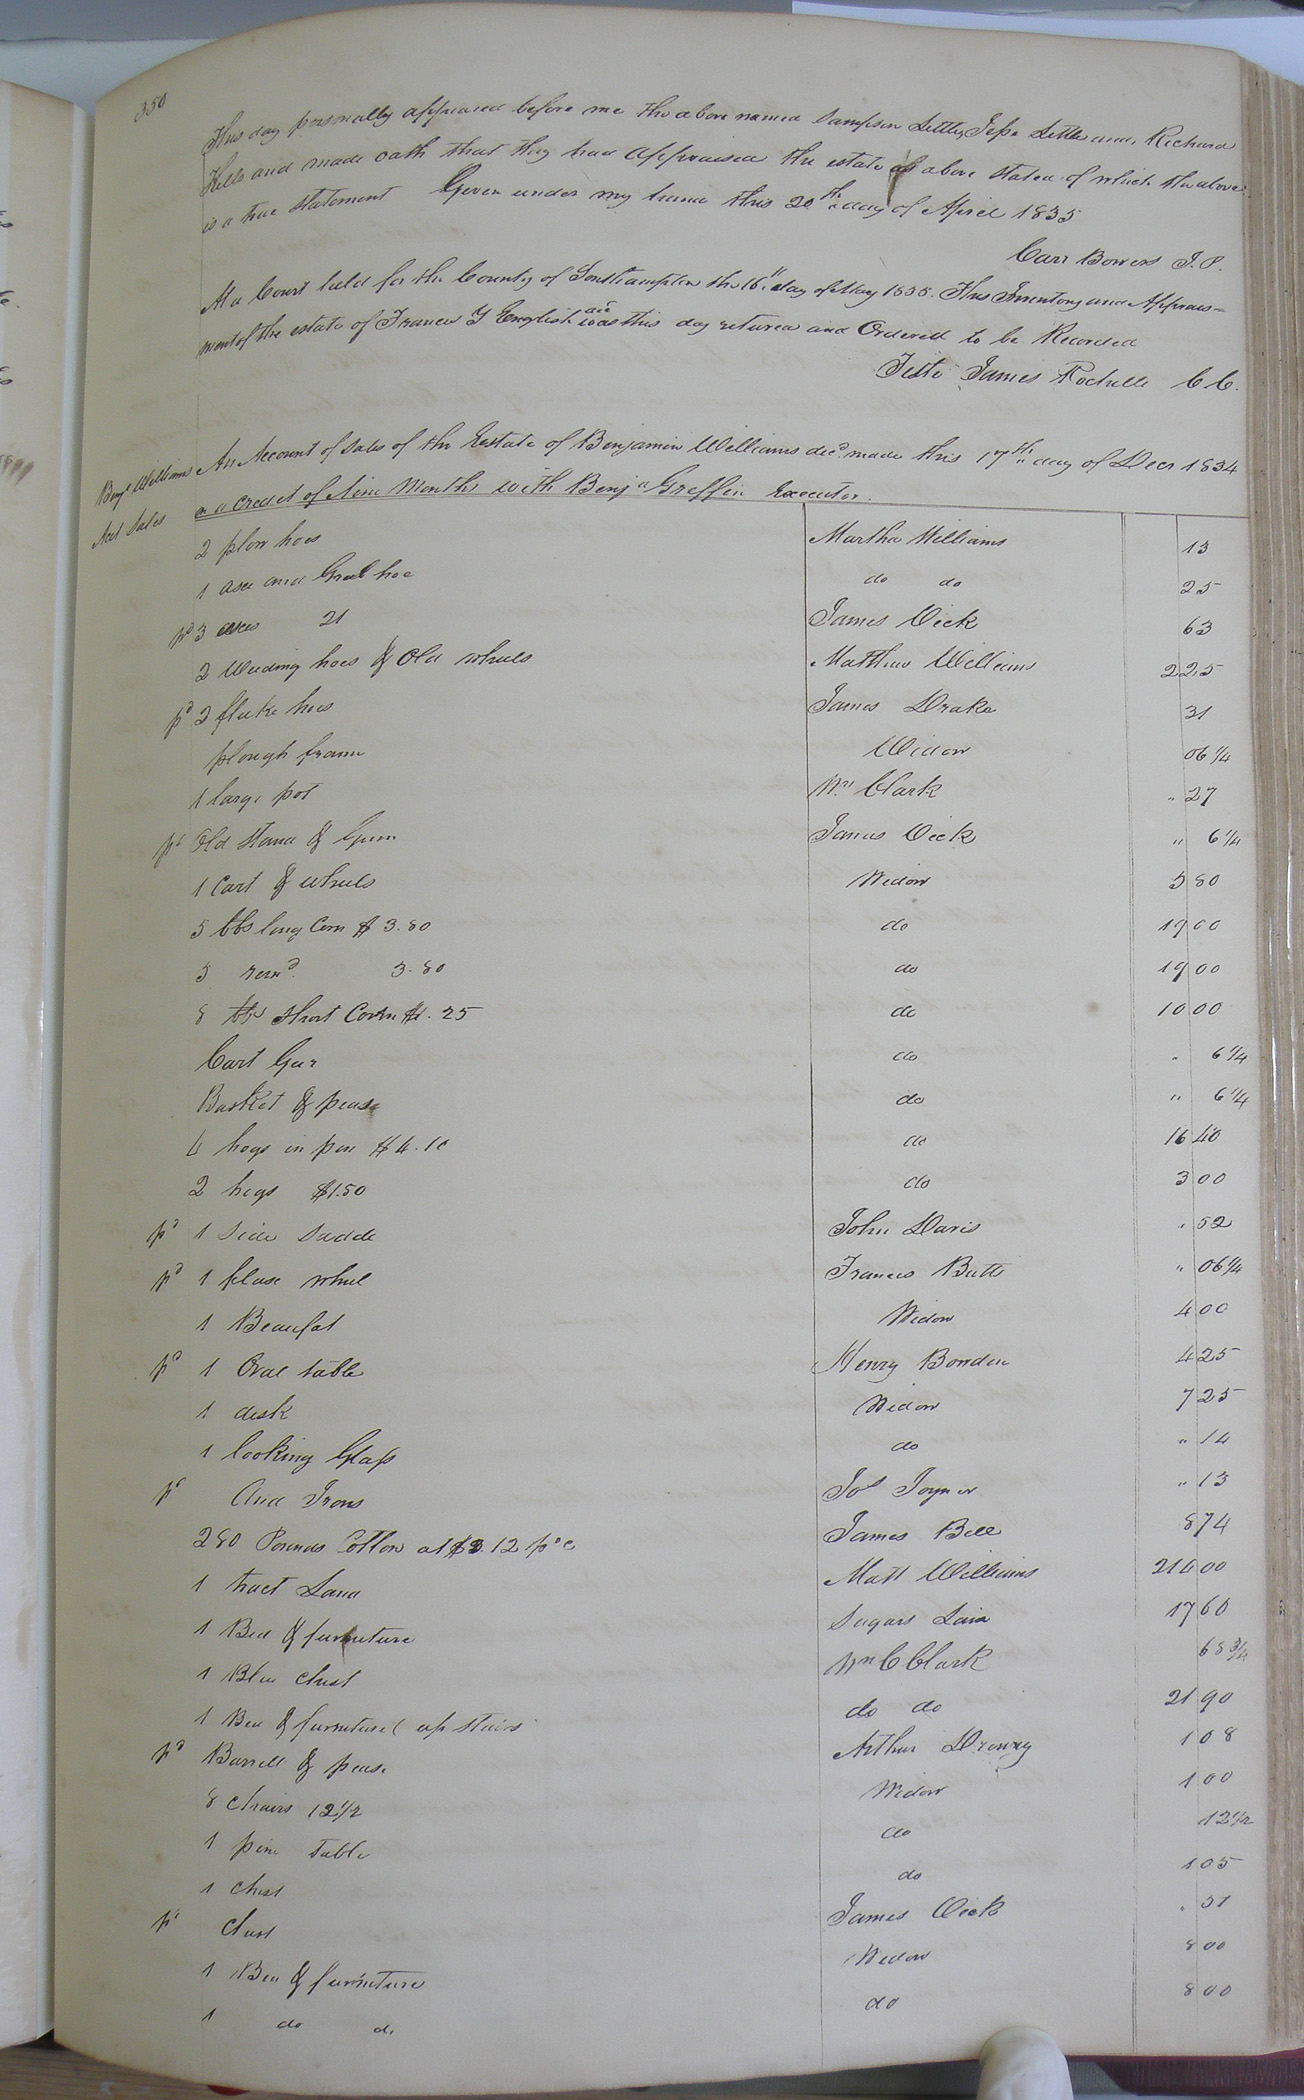 350
This day personally appeared before me the above named Sampson Little, Jesse Little and Richard
Kells and made oath that they had appraised the estate as above stated of which the above
is a true statement Given under my hand this 20th day of April 1835
Carr Bowers J.P.
At a Court held for the County of Southampton the 18th day of May 1835. This Inventory and Apprais-
ment of the estate of Frances Y English decd was this day returned and Ordered to be Recorded
Teste James Rochelle C C.
Benja Williams
Act Sales
An Account of sales of the Estate of Benjamin Williams decd. made this 17th day of Decr 1834
on a credit of Nine Months with Benja Griffin Executor.
2 plow hoes Martha Williams 13
1 axe and Grub hoe do do 25
pd 3 axes 21 James Vick 63
2 Weeding hoes & Old wheels Matthew Williams 2 25
pd 2 fluke hoes James Drake 31
plough frame Widow 06 1/4
1 large pot Wm Clark " 27
pd Old Stand & Gum James Vick " 6 1/4
1 Cart & wheels Widow 3 80
5 bbs long Corn $ 3.80 do 19 00
5 remd. 3.80 do 19 00
8 bbs short Corn $1.25 do 10 00
Cart Gear do " 6 1/4
Basket & pease do " 6 1/4
4 hogs in pen $4.10 do 16 40
2 hogs $1.50 do 3 00
pd 1 Side Saddle John Davis " 52
pd 1 flax wheel Francis Butts " 06 1/4
1 Beaufat Widow 4 00
pd 1 Oval table Henry Bowden 4 25
1 desk Widow 7 25
1 looking Glass do " 14
pd And Irons Jos Joyner " 13
280 Pounds Cotton at $3.12 pr c James Bell 8 74
1 tract Land Matt Williams 214 00
1 Bed & furniture Sugars Lain 17 60
1 Blue Chest Wm C Clark 68 3/4
1 Bed & furniture (up stairs do do 21 90
pd Barrell & pease Arthur Drewry 1 08
8 chairs 12 1/2 Widow 1 00
1 pine table do 12 1/2
1 Chest do 1 05
pd Chest James Vick . 31
1 Bed & furniture Widow 8 00
1 do do do 8 00